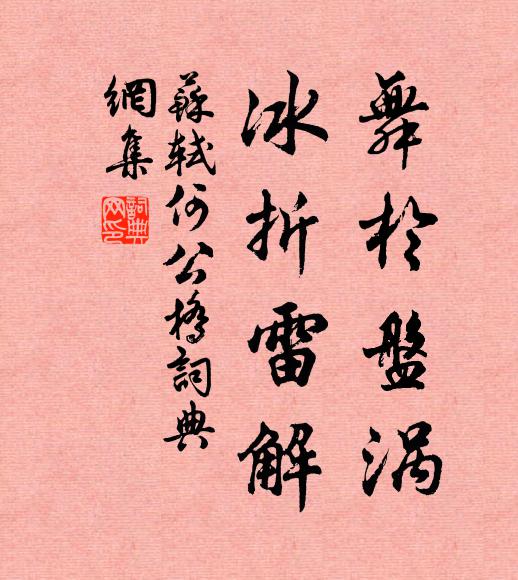 舞於盤渦
冰折雷解
蘇軾何公橋詞典
網集
詞典
网印